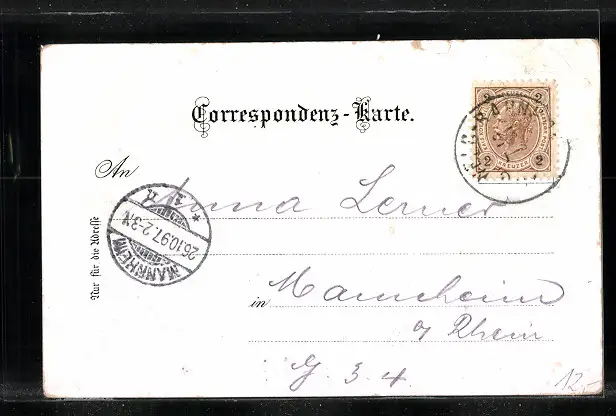 Correspondenz-Karte.
2 2
2 KREUZER 2
An Anna Lerner
MANNHEIM
26.10.97.2-3N
Nur für die Adresse
in Mannheim
a/ Rhein
G. 3 4.
12,-